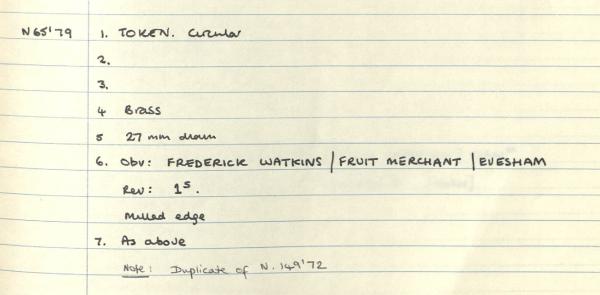 N65'79 1. TOKEN. Circular
2.
3.
4 Brass
5 27 mm diam
6. Obv: FREDERICK WATKINS / FRUIT MERCHANT / EVESHAM
Rev: 1s.
Milled edge
7. As above
Note: Duplicate of N.149'72